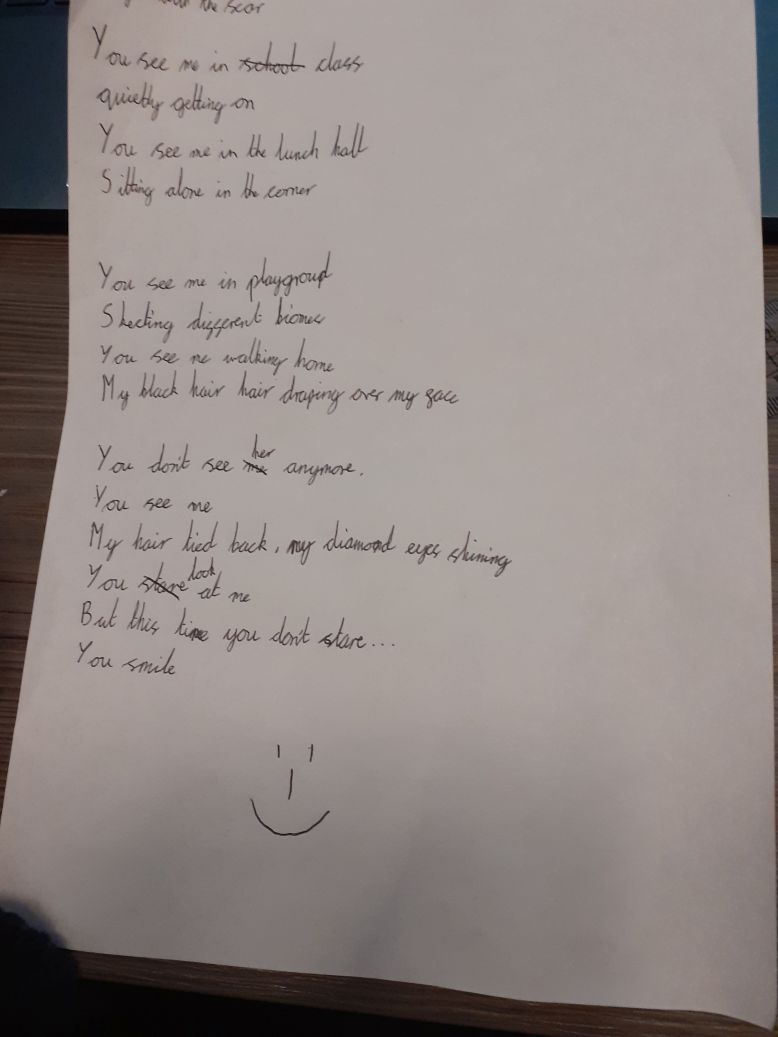 with the scar
You see me in school class
quietly getting on
You see me in the lunch hall
Sitting alone in the corner
You see me in playgroud
Skecting different biomes
You see me walking home
My black hair hair draping over my face
You don't see me her anymore.
You see me
My hair tied back, my diamond eyes shining
You stare look at me
But this time you don't stare...
You smile